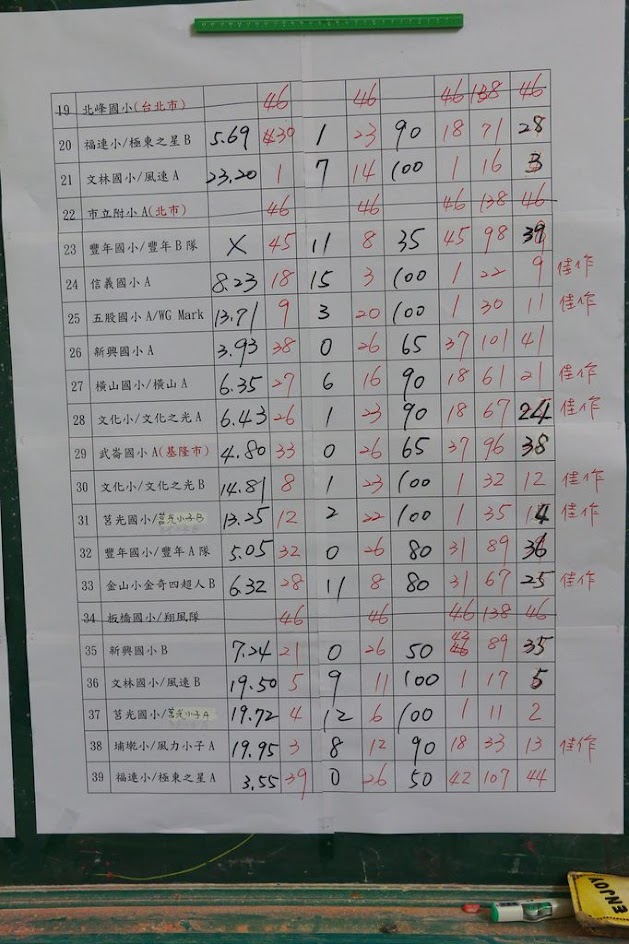 19 北峰國小(台北市) 46 46 46 138 46
20 福連小/極東之星B 5.69 30 1 23 90 18 71 28
21 文林國小/風速A 23.20 1 7 14 100 1 16 3
22 市立附小A(北市) 46 46 46 138 46
23 豐年國小/豐年B隊 X 45 11 8 35 45 98 39
24 信義國小A 8.23 18 15 3 100 1 22 9 佳作
25 五股國小A/WG Mark 13.71 9 3 20 100 1 30 11 佳作
26 新興國小A 3.93 38 0 26 65 37 101 41
27 橫山國小/橫山A 6.35 27 6 16 90 18 61 21 佳作
28 文化小/文化之光A 6.43 26 1 23 90 18 67 24 佳作
29 武崙國小A(基隆市) 4.80 33 0 26 65 37 96 38
30 文化小/文化之光B 14.81 8 1 23 100 1 32 12 佳作
31 莒光國小/莒光小子B 13.25 12 2 22 100 1 35 14 佳作
32 豐年國小/豐年A隊 5.05 32 0 26 80 31 89 36
33 金山小金奇四超人B 6.32 28 11 8 80 31 67 25 佳作
34 板橋國小/翔風隊 46 46 46 138 46
35 新興國小B 7.24 21 0 26 50 42 89 35
36 文林國小/風速B 19.50 5 9 11 100 1 17 5
37 莒光國小/莒光小子A 19.72 4 12 6 100 1 11 2
38 埔墘小/風力小子A 19.95 3 8 12 90 18 33 13 佳作
39 福連小/極東之星A 3.55 39 0 26 50 42 107 44
ENJOY